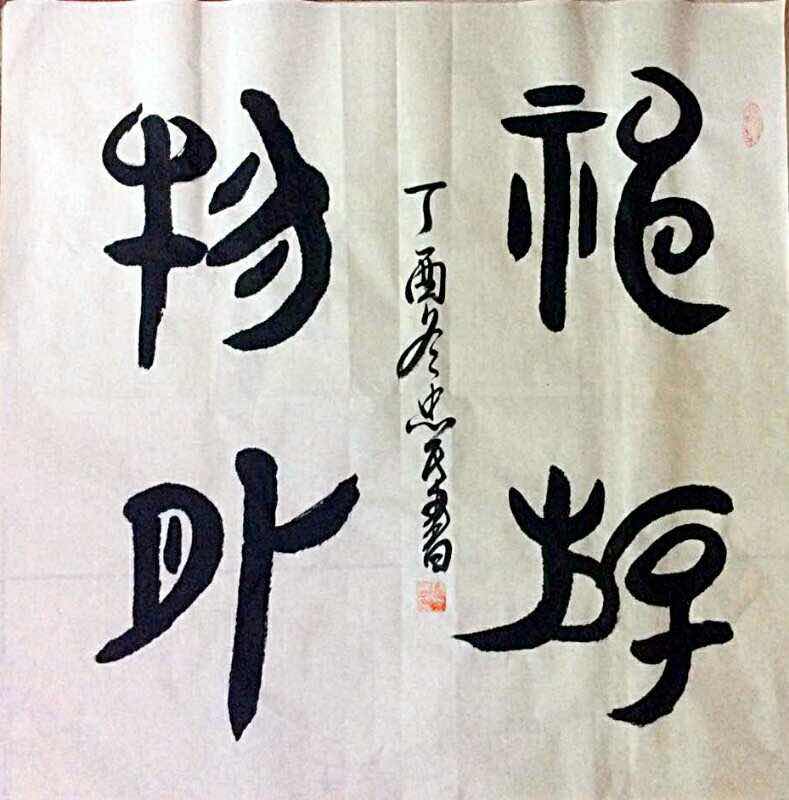 神游
物外
丁酉冬忠民書